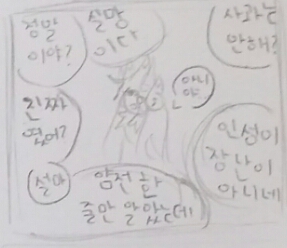 정말
이야?
실망
이다
사과는
안해?
아니
야
진짜
였어?
인성이
장난이
아니네
설마
얌전한
줄만 알았는데